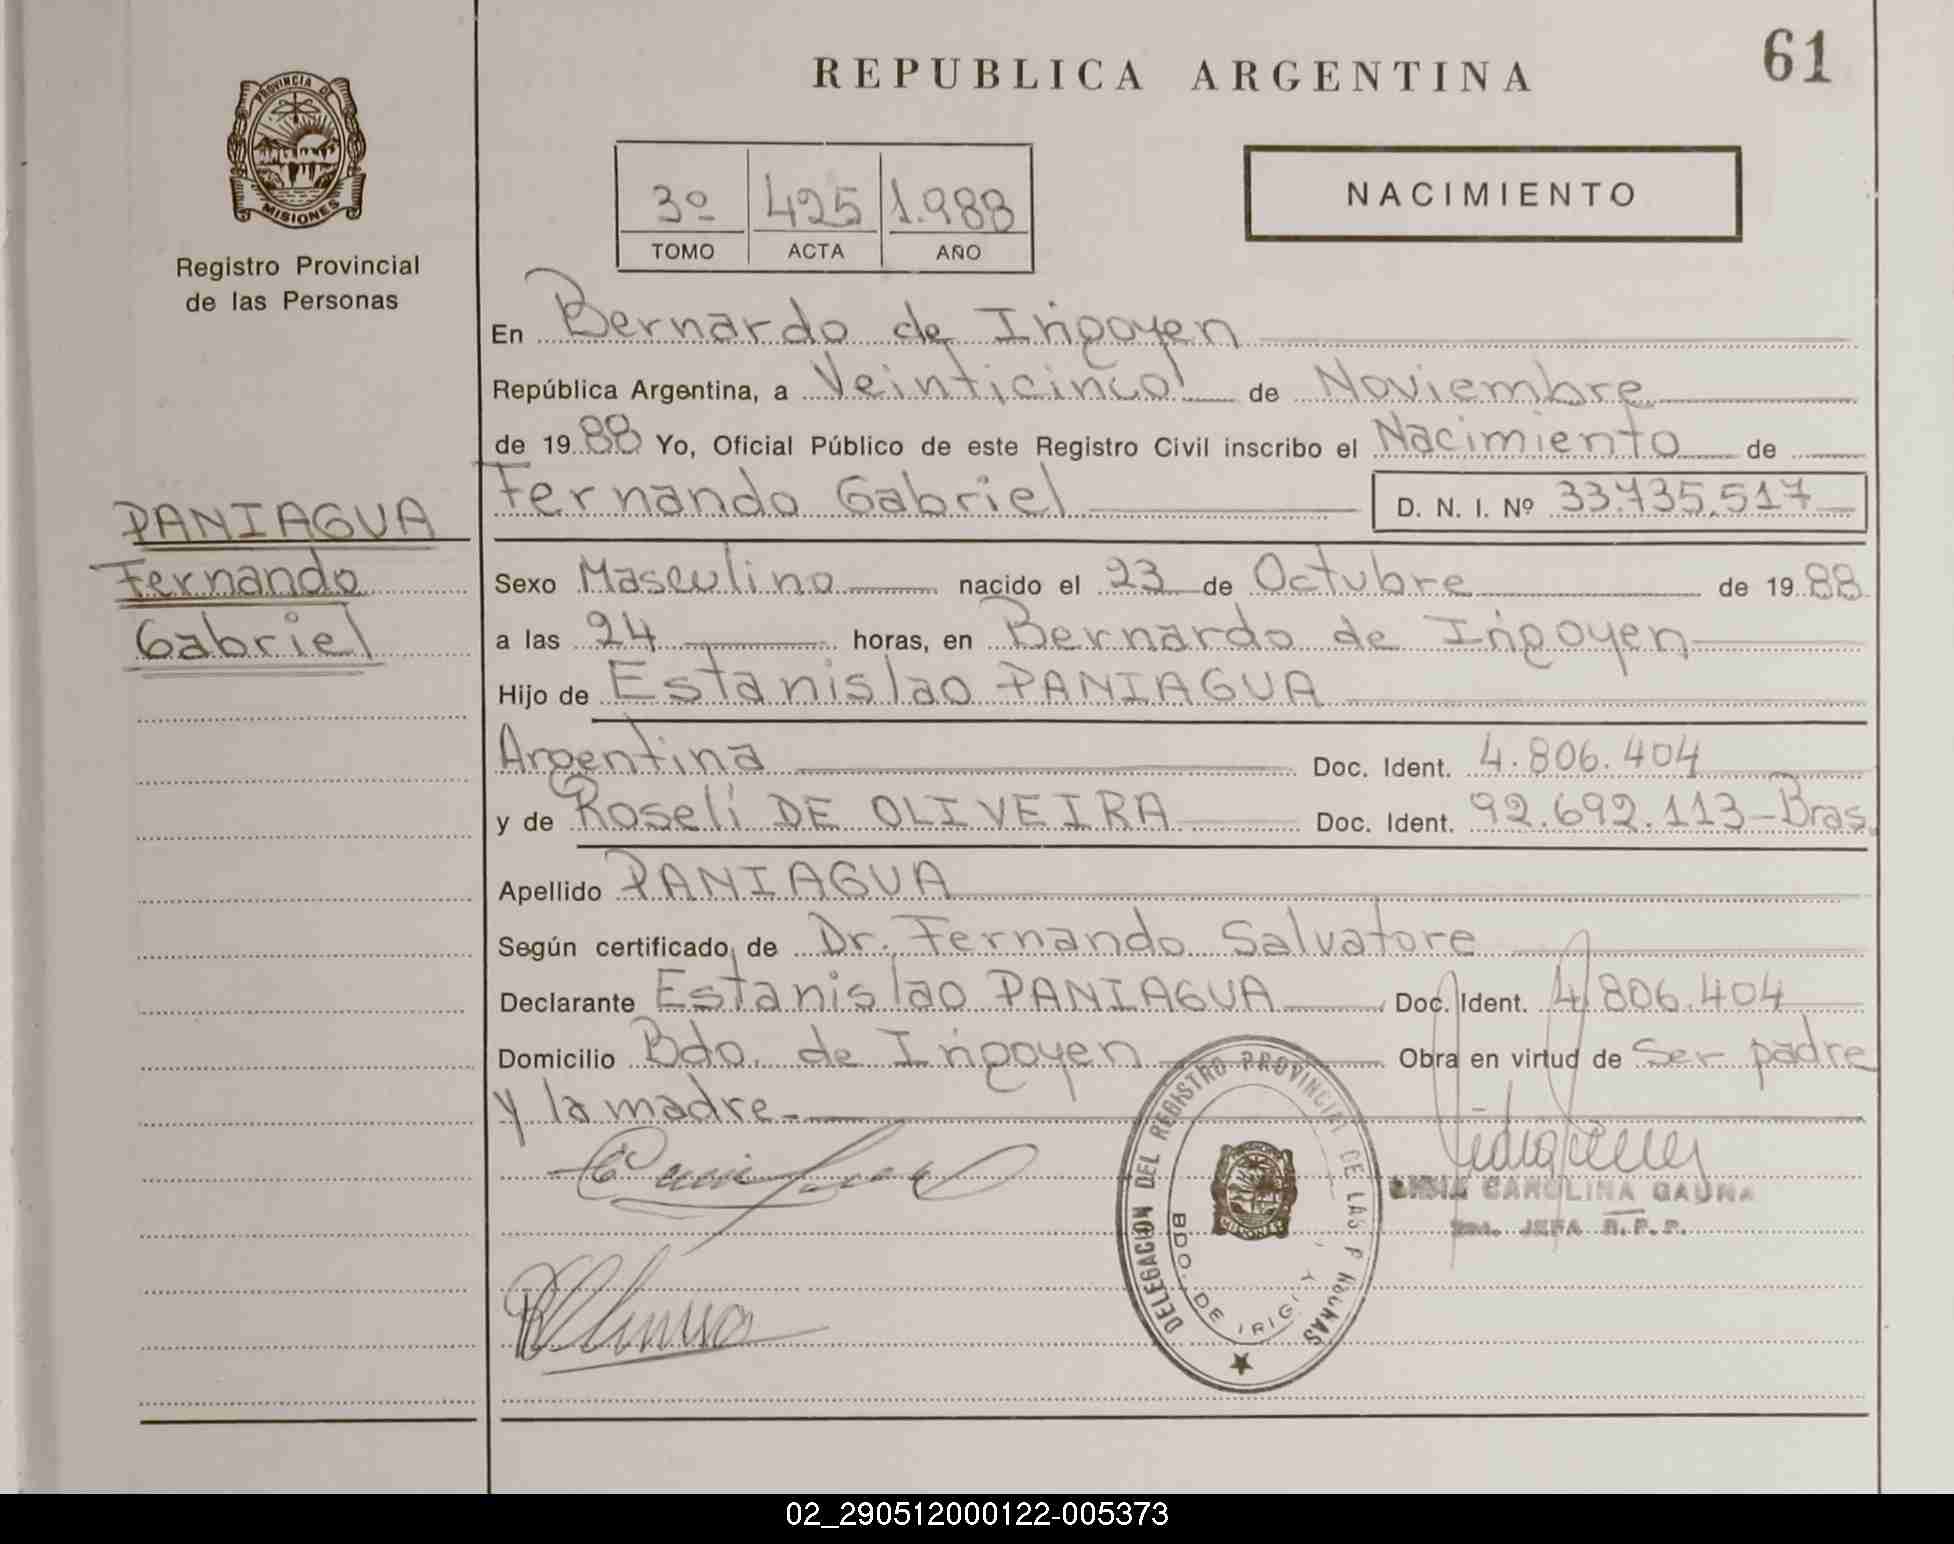 REPUBLICA ARGENTINA
61
PROVINCIA DE
MISIONES
Registro Provincial
de las Personas
3º 425 1.988
TOMO ACTA AÑO
NACIMIENTO
En Bernardo de Irigoyen
República Argentina, a Veinticinco de Noviembre
de 1988 Yo, Oficial Público de este Registro Civil inscribo el Nacimiento de
Fernando Gabriel D. N. I. Nº 33.735.517
PANIAGUA
Fernando
Gabriel
Sexo Masculino nacido el 23 de Octubre de 1988
a las 24 horas, en Bernardo de Irigoyen
Hijo de Estanislao PANIAGUA
Argentina Doc. Ident. 4.806.404
y de Roseli DE OLIVEIRA Doc. Ident. 92.692.113-Bras.
Apellido PANIAGUA
Según certificado de Dr. Fernando Salvatore
Declarante Estanislao PANIAGUA Doc. Ident. 4.806.404
Domicilio Bdo. de Irigoyen Obra en virtud de ser padre
y la madre.-
DELEGACION DEL REGISTRO PROVINCIAL DE LAS
BDO. DE
MISIONES
CAROLINA GAUNA
JEFA R.P.P.
02_290512000122-005373